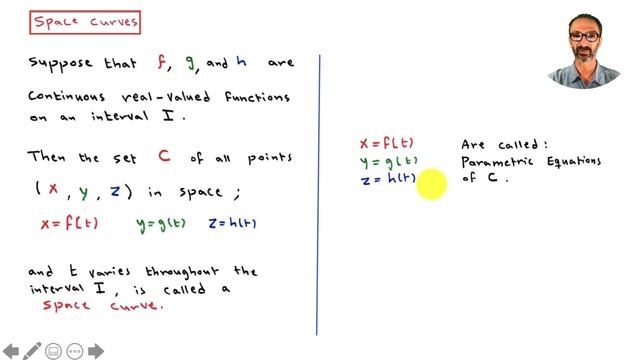 Space Curves
Suppose that f, g, and h are
Continuous real-valued functions
on an interval I.
Then the set C of all points
(x, y, z) in space;
x=f(t) y=g(t) z=h(t)
and t varies throughout the
interval I, is called a
Space curve.
x=f(t) Are called:
y=g(t) Parametric Equations
z=h(t) of C.